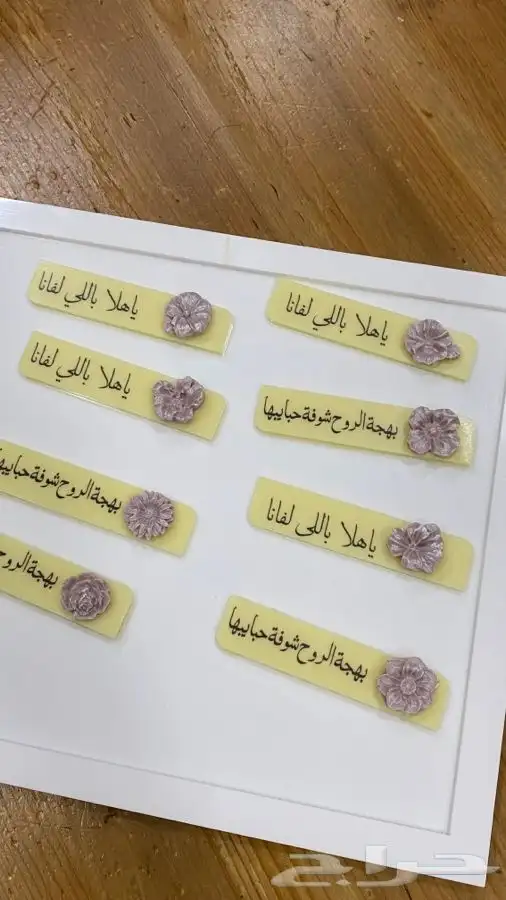 ياهلا باللي لفانا
ياهلا باللي لفانا
ياهلا باللي لفانا
بهجة الروح شوفة حبايبها
بهجة الروح شوفة حبايبها
ياهلا باللي لفانا
بهجة الروح
بهجة الروح شوفة حبايبها
حراج